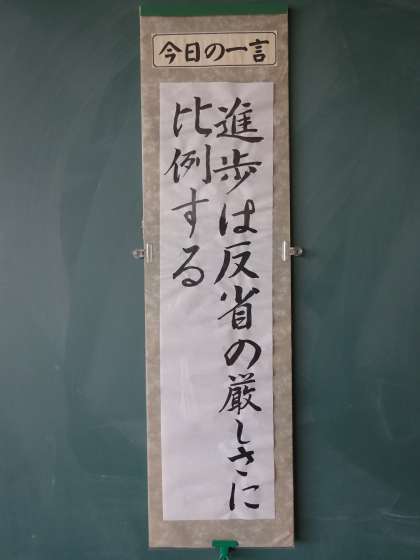 今日の一言
進歩は反省の厳しさに
比例する